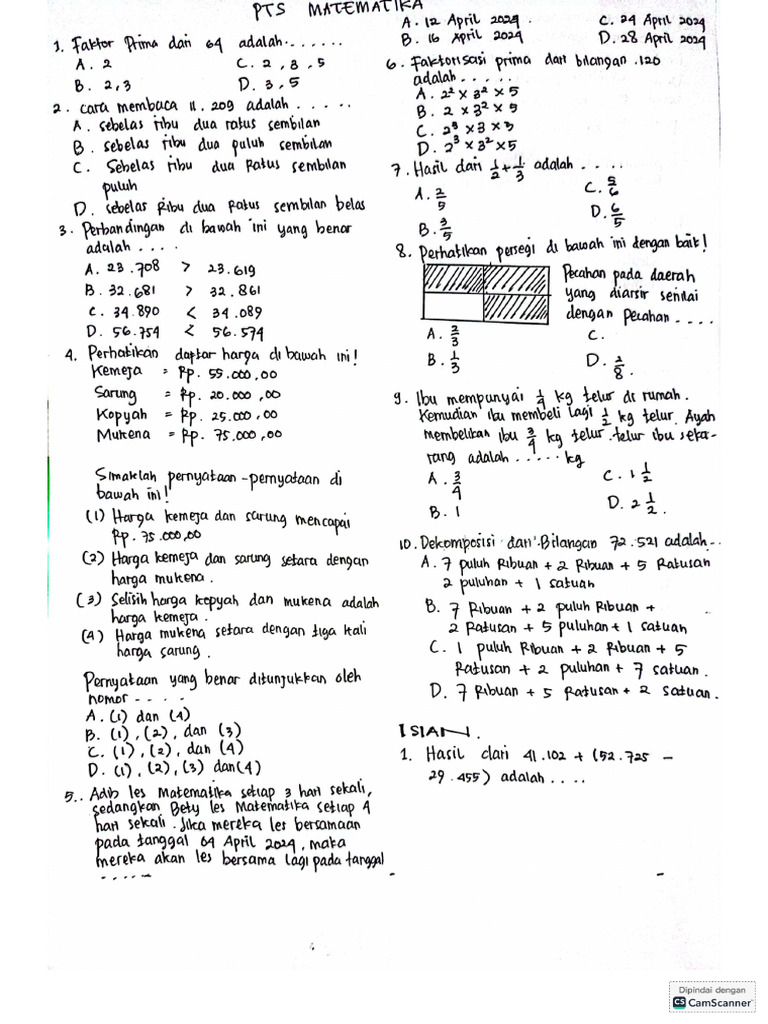 PTS MATEMATIKA
1. Faktor Prima dari 64 adalah......
A. 2 C. 2, 3, 5
B. 2,3 D. 3, 5
2. cara membaca 11. 209 adalah .....
A. sebelas ribu dua ratus sembilan
B. sebelas ribu dua puluh sembilan
C. Sebelas ribu dua Ratus sembilan
puluh
D. sebelas Ribu dua Ratus sembilan belas
3. Perbandingan di bawah ini yang benar
adalah ....
A. 23.708 > 23.619
B. 32.681 > 32.861
C. 34.890 < 34.089
D. 56.754 < 56.574
4. Perhatikan daptar harga di bawah ini!
Kemeja = Rp. 55.000,00
Sarung = Rp. 20.000,00
Kopyah = Rp. 25.000,00
Mukena = Rp. 75.000,00
Simaklah pernyataan-pernyataan di
bawah ini!
(1) Harga kemeja dan sarung mencapai
Rp. 75.000,00
(2) Harga kemeja dan sarung setara dengan
harga mukena.
(3) Selisih harga kopyah dan mukena adalah
harga kemeja.
(4) Harga mukena setara dengan tiga kali
harga sarung.
Pernyataan yang benar ditunjukkan oleh
nomor ....
A. (1) dan (4)
B. (1), (2), dan (3)
C. (1), (2), dan (4)
D. (1), (2), (3) dan (4)
5.. Adib les Matematika setiap 3 hari sekali,
sedangkan Bety les Matematika setiap 4
hari sekali. Jika mereka les bersamaan
pada tanggal 04 April 2024, maka
mereka akan les bersama lagi pada tanggal
.....
A. 12 April 2024 C. 24 April 2024
B. 16 April 2024 D. 28 April 2024
6. Faktorisasi prima dari bilangan .120
adalah .....
A. 2² x 3² x 5
B. 2 x 3² x 5
C. 2³ x 3 x 5
D. 2³ x 3² x 5
7. Hasil dari 1/2 + 1/3 adalah ....
A. 2/5 C. 5/6
B. 3/5 D. 6/5
8. Perhatikan persegi di bawah ini dengan baik!
Pecahan pada daerah
yang diarsir senilai
dengan pecahan ....
A. 2/3 C.
B. 1/3 D. 2/8.
9. Ibu mempunyai 1/4 kg telur di rumah.
Kemudian ibu membeli lagi 1/2 kg telur. Ayah
membelikan ibu 3/4 kg telur. telur ibu seka-
rang adalah ...... kg
A. 3/4 C. 1 1/2
B. 1 D. 2 1/2.
10. Dekomposisi dari Bilangan 72.521 adalah...
A. 7 puluh Ribuan + 2 Ribuan + 5 Ratusan
2 puluhan + 1 satuan
B. 7 Ribuan + 2 puluh Ribuan +
2 Ratusan + 5 puluhan + 1 satuan
C. 1 puluh Ribuan + 2 Ribuan + 5
Ratusan + 2 puluhan + 7 satuan.
D. 7 Ribuan + 5 Ratusan + 2 Satuan.
ISIAN.
1. Hasil dari 41.102 + (52.725 -
29.455) adalah ....
Dipindai dengan
CS CamScanner